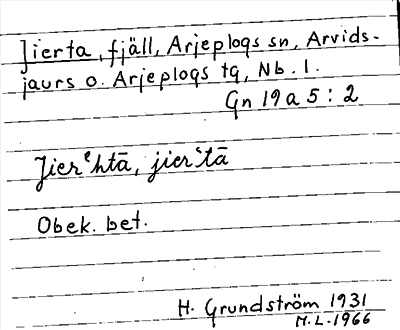 Jierta, fjäll, Arjeplogs sn, Arvids-
jaurs o. Arjeplogs tg, Nb. l.
Gn 19 a 5 : 2
Jierᵉhtā, jierˈtā
Obek. bet.
H. Grundström 1931
M.L.-1966